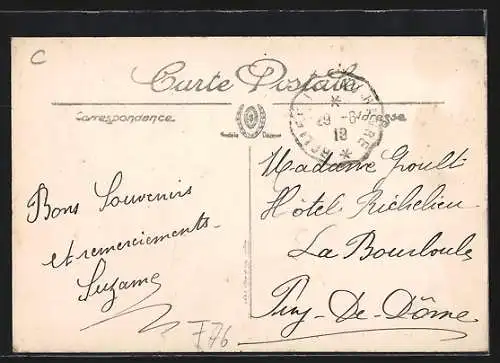 C
Carte Postale
Correspondance
Adresse
29 -8
19
Bons Souvenirs
et remerciements
Suzanne
Madame Groult
Hôtel Richelieu
La Bourboule
Puy-De-Dôme
F76